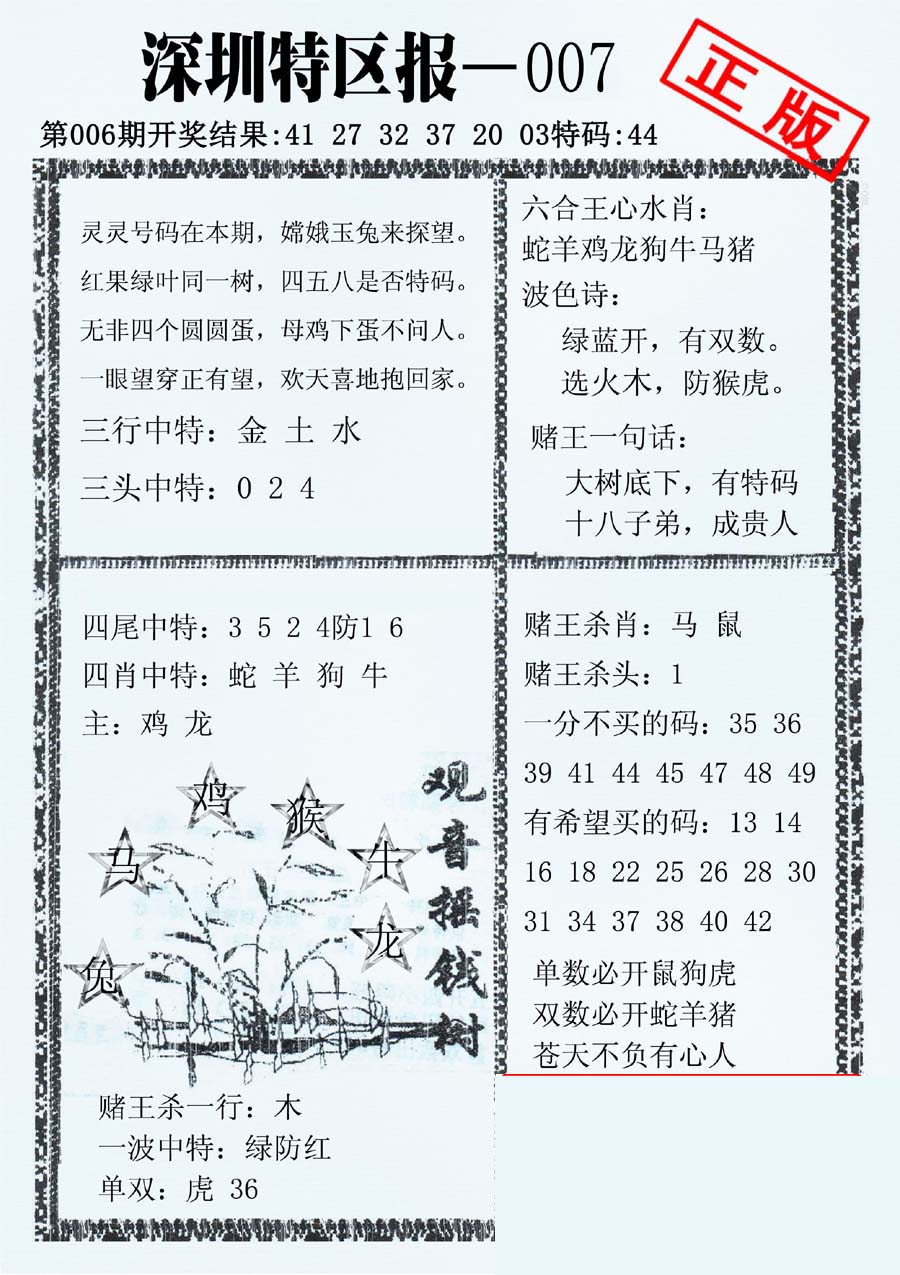 深圳特区报—007
正版
第006期开奖结果:41 27 32 37 20 03特码:44
灵灵号码在本期，嫦娥玉兔来探望。
红果绿叶同一树，四五八是否特码。
无非四个圆圆蛋，母鸡下蛋不问人。
一眼望穿正有望，欢天喜地抱回家。
三行中特：金 土 水
三头中特：0 2 4
六合王心水肖：
蛇羊鸡龙狗牛马猪
波色诗：
绿蓝开，有双数。
选火木，防猴虎。
赌王一句话：
大树底下，有特码
十八子弟，成贵人
四尾中特：3 5 2 4防1 6
四肖中特：蛇 羊 狗 牛
主：鸡 龙
鸡
猴
马
牛
龙
兔
观音摇钱树
赌王杀一行：木
一波中特：绿防红
单双：虎 36
赌王杀肖：马 鼠
赌王杀头：1
一分不买的码：35 36
39 41 44 45 47 48 49
有希望买的码：13 14
16 18 22 25 26 28 30
31 34 37 38 40 42
单数必开鼠狗虎
双数必开蛇羊猪
苍天不负有心人